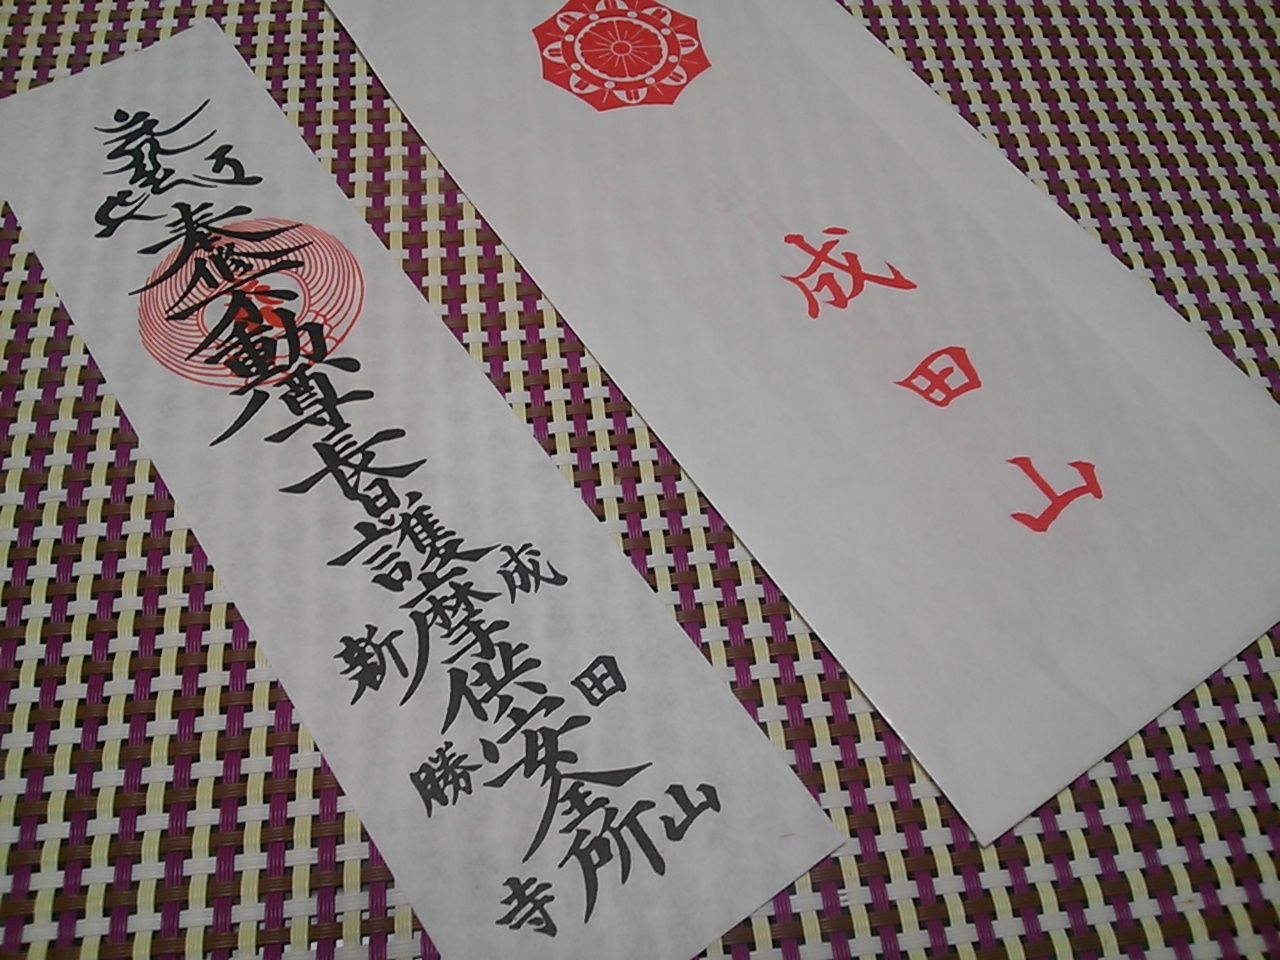 奉修不動尊長日護摩供安全所
成田山
新勝寺
成田山